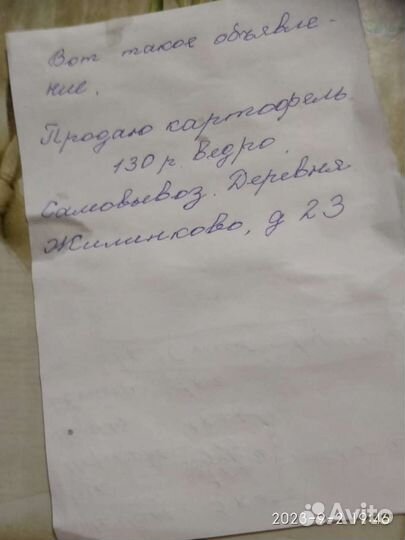 Вот такое объявле-
ние.
Продаю картофель.
130 р. ведро.
Самовывоз. Деревня
Жилинково, д 23
2023-9-2 19:46
Avito